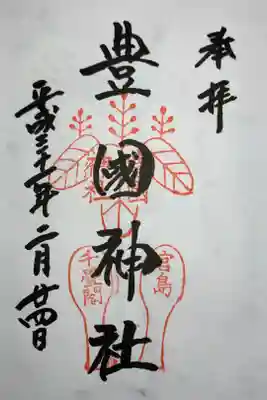 奉拝
豊國神社
宮島
千畳閣
平成三十一年二月廿四日